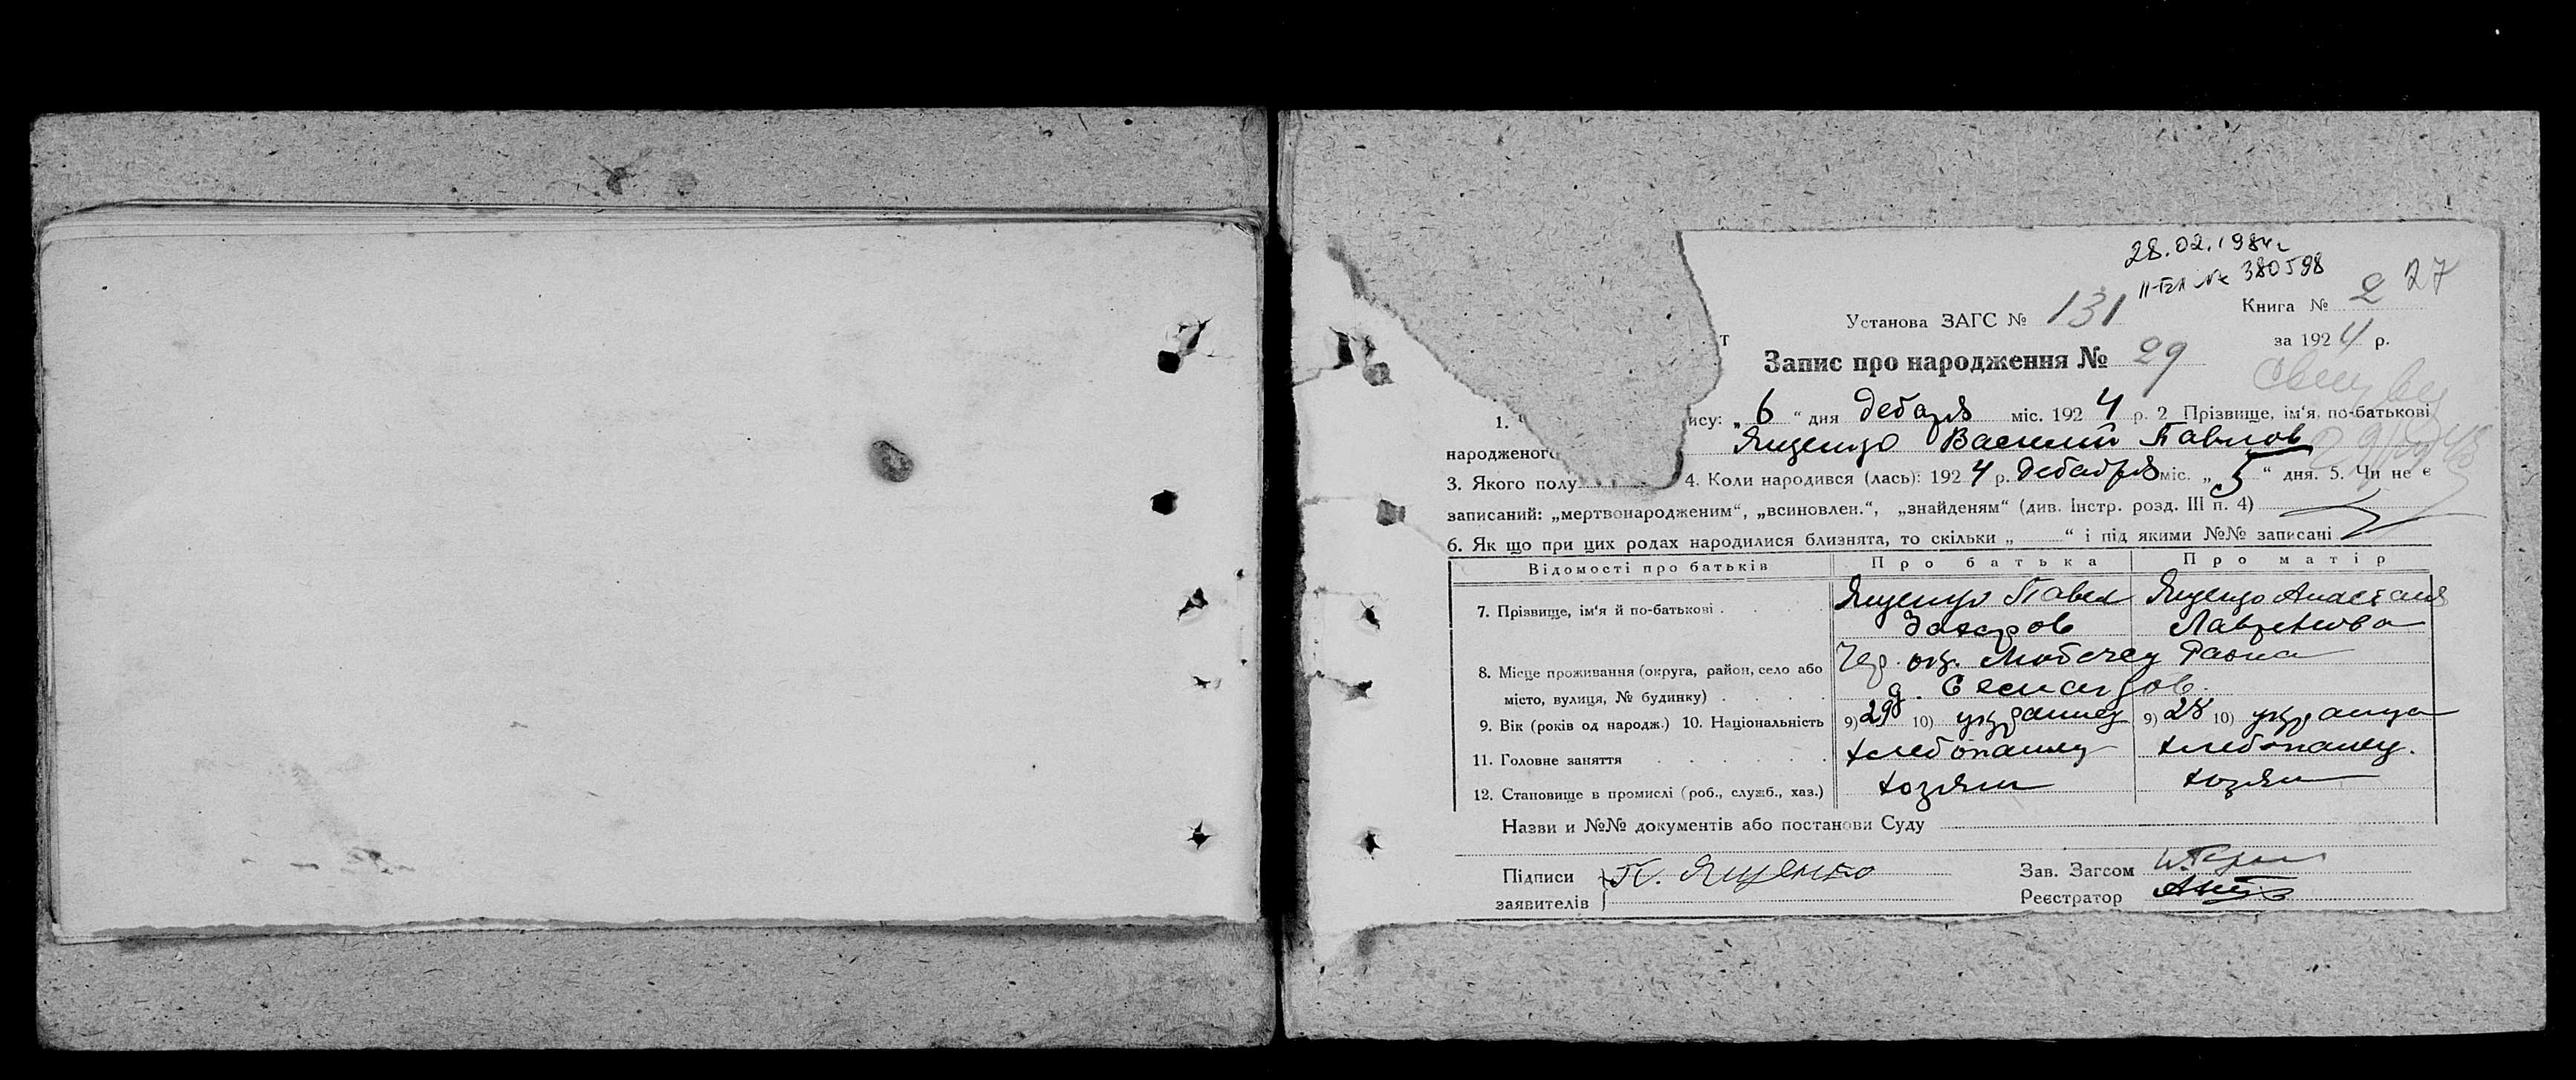 28.02.1984г
II-БЛ № 380598
27
Установа ЗАГС № 131 Книга № 2
т за 1924 р.
Запис про народження № 29
1. ису: „6“ дня декабря міс. 1924 р. 2 Прізвище, ім'я, по-батькові
народженого Ященко Василий Павлов
3. Якого полу 4. Коли народився (лась): 1924 р. декабря міс. „5“ дня. 5. Чи не є
записаний: „мертвонародженим“, „всиновлен.“, „знайденям“ (див. Інстр. розд. III п. 4)
6. Як що при цих родах народилися близнята, то скільки „ “ і під якими №№ записані
Відомості про батьків Про батька Про матір
7. Прізвище, ім'я й по-батькові . Ященко Павел Ященко Анастасия
Захаров Лаврентова
8. Місце проживання (округа, район, село або Чер. окр. Любечск Раона
місто, вулиця, № будинку) д.
9. Вік (років од народж.) 10. Національність 9) 29 10) украинец 9) 28 10) украинка
11. Головне заняття хлебопашец хлебопашец.
12. Становище в промислі (роб., служб., хаз.) хозяин хозяин
Назви и №№ документів або постанови Суду
Підписи П. Ященко Зав. Загсом
заявителів Реєстратор